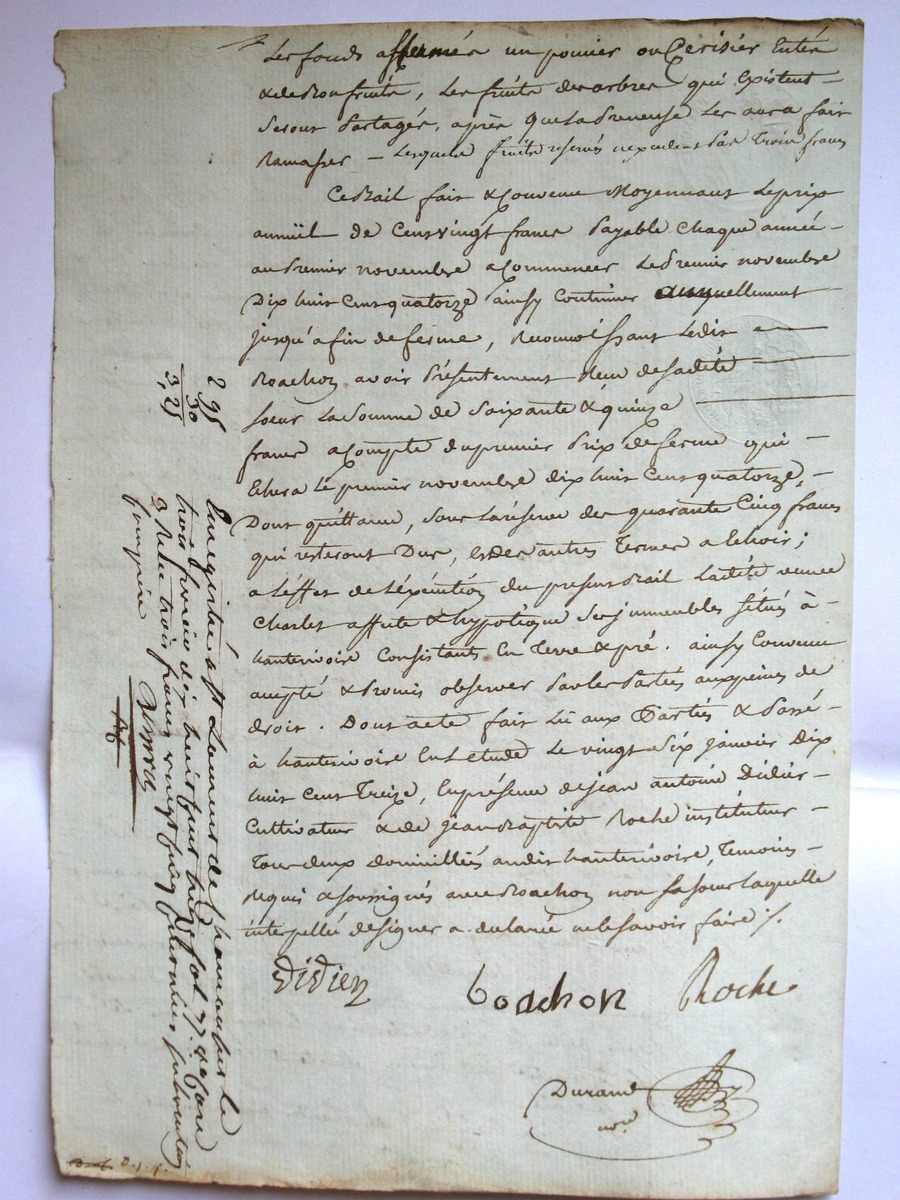 Les fonds affermés un pomier ou Cerisier Entés
& de Bon fruits, Les fruits des arbres qui Existent
Seront Partagés, après que La Preneuse Les aura fait
Ramasser — Lesquels fruits réservés n'excedent Pas Trois francs
Ce Bail fait & Convenu Moyennant Le prix
annüel de Cent vingt francs Payable Chaque année
au Premier novembre a Commencer Le Premier novembre
Dix huit Cent quatorze ainsy Continuer annuellement
jusqu'a fin de ferme, Reconnoissant Ledit
Boachon avoir Présentement Reçu de sadite
soeur La Somme de Soixante & quinze
francs a Compte du premier Prix de ferme qui
Echera le premier novembre dix huit Cent quatorze,
Dont quittance, sous La réserve des quarante Cinq francs
qui resteront Dus, et des autres Termes a Echoir;
a L'effet de L'éxécution du present Bail Ladite veuve
Charles affecte & hypotèque Ses jmmeubles sitüés à
hauterivoire Consistants En Terre & pré. ainsy Convenu
accepté & Promis observer Par les Parties aux peines de
droit. Dont acte fait Lu aux Parties & Passé
à hauterivoire En L'etude Le vingt Six janvier Dix
huit Cent Treize, En présence de jean antoine Didier
Cultivateur & de jean Baptiste Roche instituteur
Tous deux domiciliés audit hauterivoire, Temoins
Requis & soussignés avec Boachon non Sa soeur Laquelle
interpellée de signer a declaré ne le savoir faire ./.
Didier
boachon
Roche
Durand
nore
2 95
30
3, 25
Enregistré à St Laurent de chamousset le
trois fevrier dix huit cent treize fol. 77
Reçu trois francs vingt cinq centimes subvention
comprise